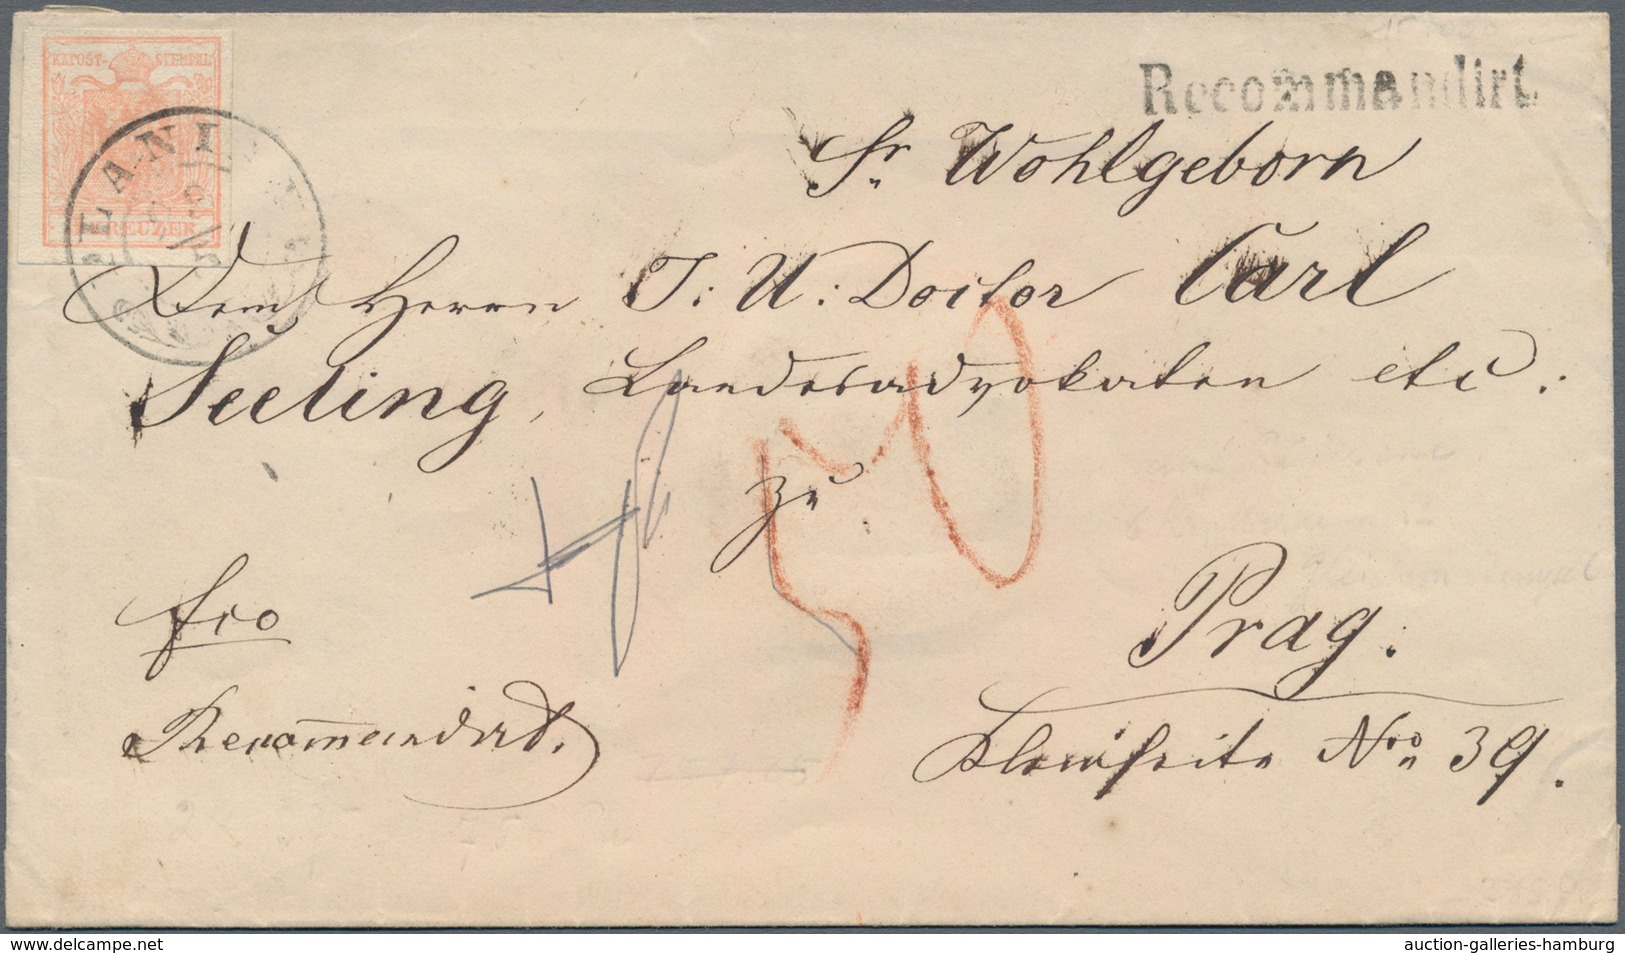 KKPOST-STEMPEL
KREUZER
PLANI
Recommandirt.
Sr. Wohlgeborn
Dem Herrn J: U: Doctor Carl
Seeling, Landesadvokaten etc:
zu
50
fro
Prag.
Recom̅andirt.
Kleinseite Nro 39.
www.delcampe.net
auction-galleries-hamburg